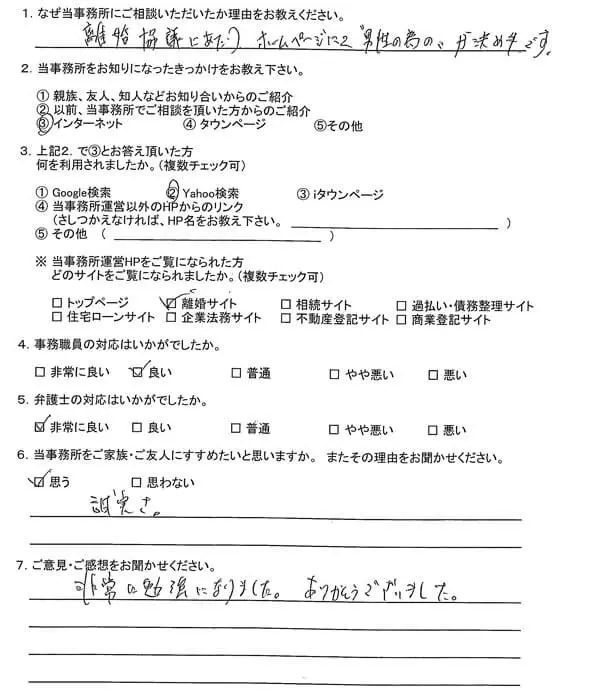 1. なぜ当事務所にご相談いただいたか理由をお教えください。
離婚協議にあたり ホームページにて"男性の為の"が決め手です。
2. 当事務所をお知りになったきっかけをお教え下さい。
① 親族、友人、知人などお知り合いからのご紹介
② 以前、当事務所でご相談を頂いた方からのご紹介
③インターネット ④ タウンページ ⑤その他
3. 上記2. で③とお答え頂いた方
何を利用されましたか。（複数チェック可）
① Google検索 ② Yahoo検索 ③ iタウンページ
④ 当事務所運営以外のHPからのリンク
（さしつかえなければ、HP名をお教え下さい。 ）
⑤ その他 （ ）
※ 当事務所運営HPをご覧になられた方
どのサイトをご覧になられましたか。（複数チェック可）
□ トップページ ☑ 離婚サイト □ 相続サイト □ 過払い・債務整理サイト
□ 住宅ローンサイト □ 企業法務サイト □ 不動産登記サイト □ 商業登記サイト
4. 事務職員の対応はいかがでしたか。
□ 非常に良い ☑ 良い □ 普通 □ やや悪い □ 悪い
5. 弁護士の対応はいかがでしたか。
☑ 非常に良い □ 良い □ 普通 □ やや悪い □ 悪い
6. 当事務所をご家族・ご友人にすすめたいと思いますか。 またその理由をお聞かせください。
☑ 思う □ 思わない
誠実さ。
7. ご意見・ご感想をお聞かせください。
非常に勉強になりました。 ありがとうございました。